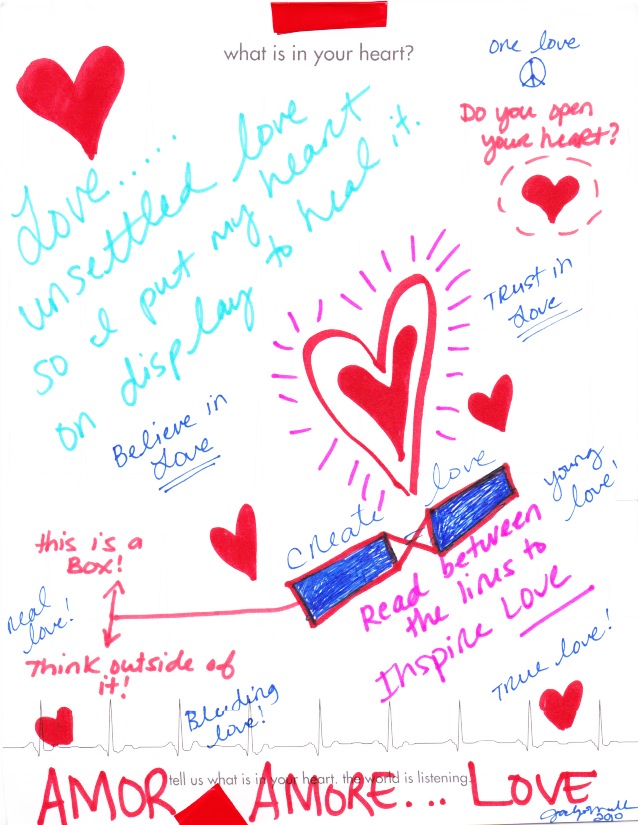 what is in your heart?
one love
Do you open
your heart?
Love.....
unsettled love
so I put my heart
on display to heal it.
Trust in
Love
Believe in
Love
create love
young
love!
this is a
Box!
Read between
the lines to
Inspire Love
real
love!
Think outside of
it!
True love!
Bleeding
love!
tell us what is in your heart. the world is listening.
AMOR AMORE... LOVE
2010